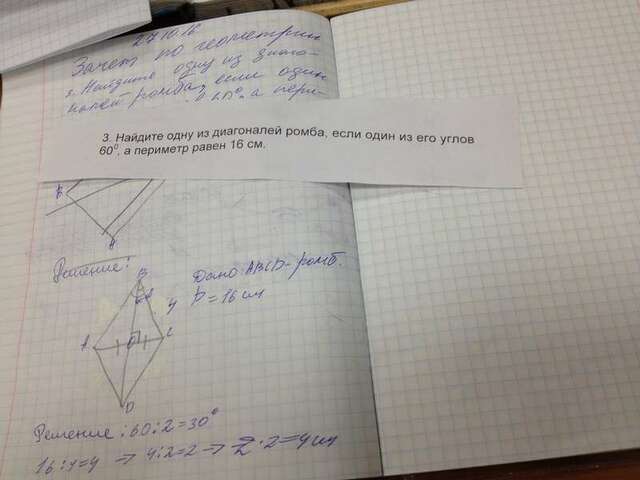 27.10.16
Зачет по геометрии
Найдите одну из диаго-
налей ромба, если один
а пери-
3. Найдите одну из диагоналей ромба, если один из его углов
60⁰, а периметр равен 16 см.
Решение:
Дано: ABCD - ромб.
P = 16 см
B
4
A
C
D
Решение: 60:2=30°
16:4=4 → 4:2=2 → 2·2=4 см